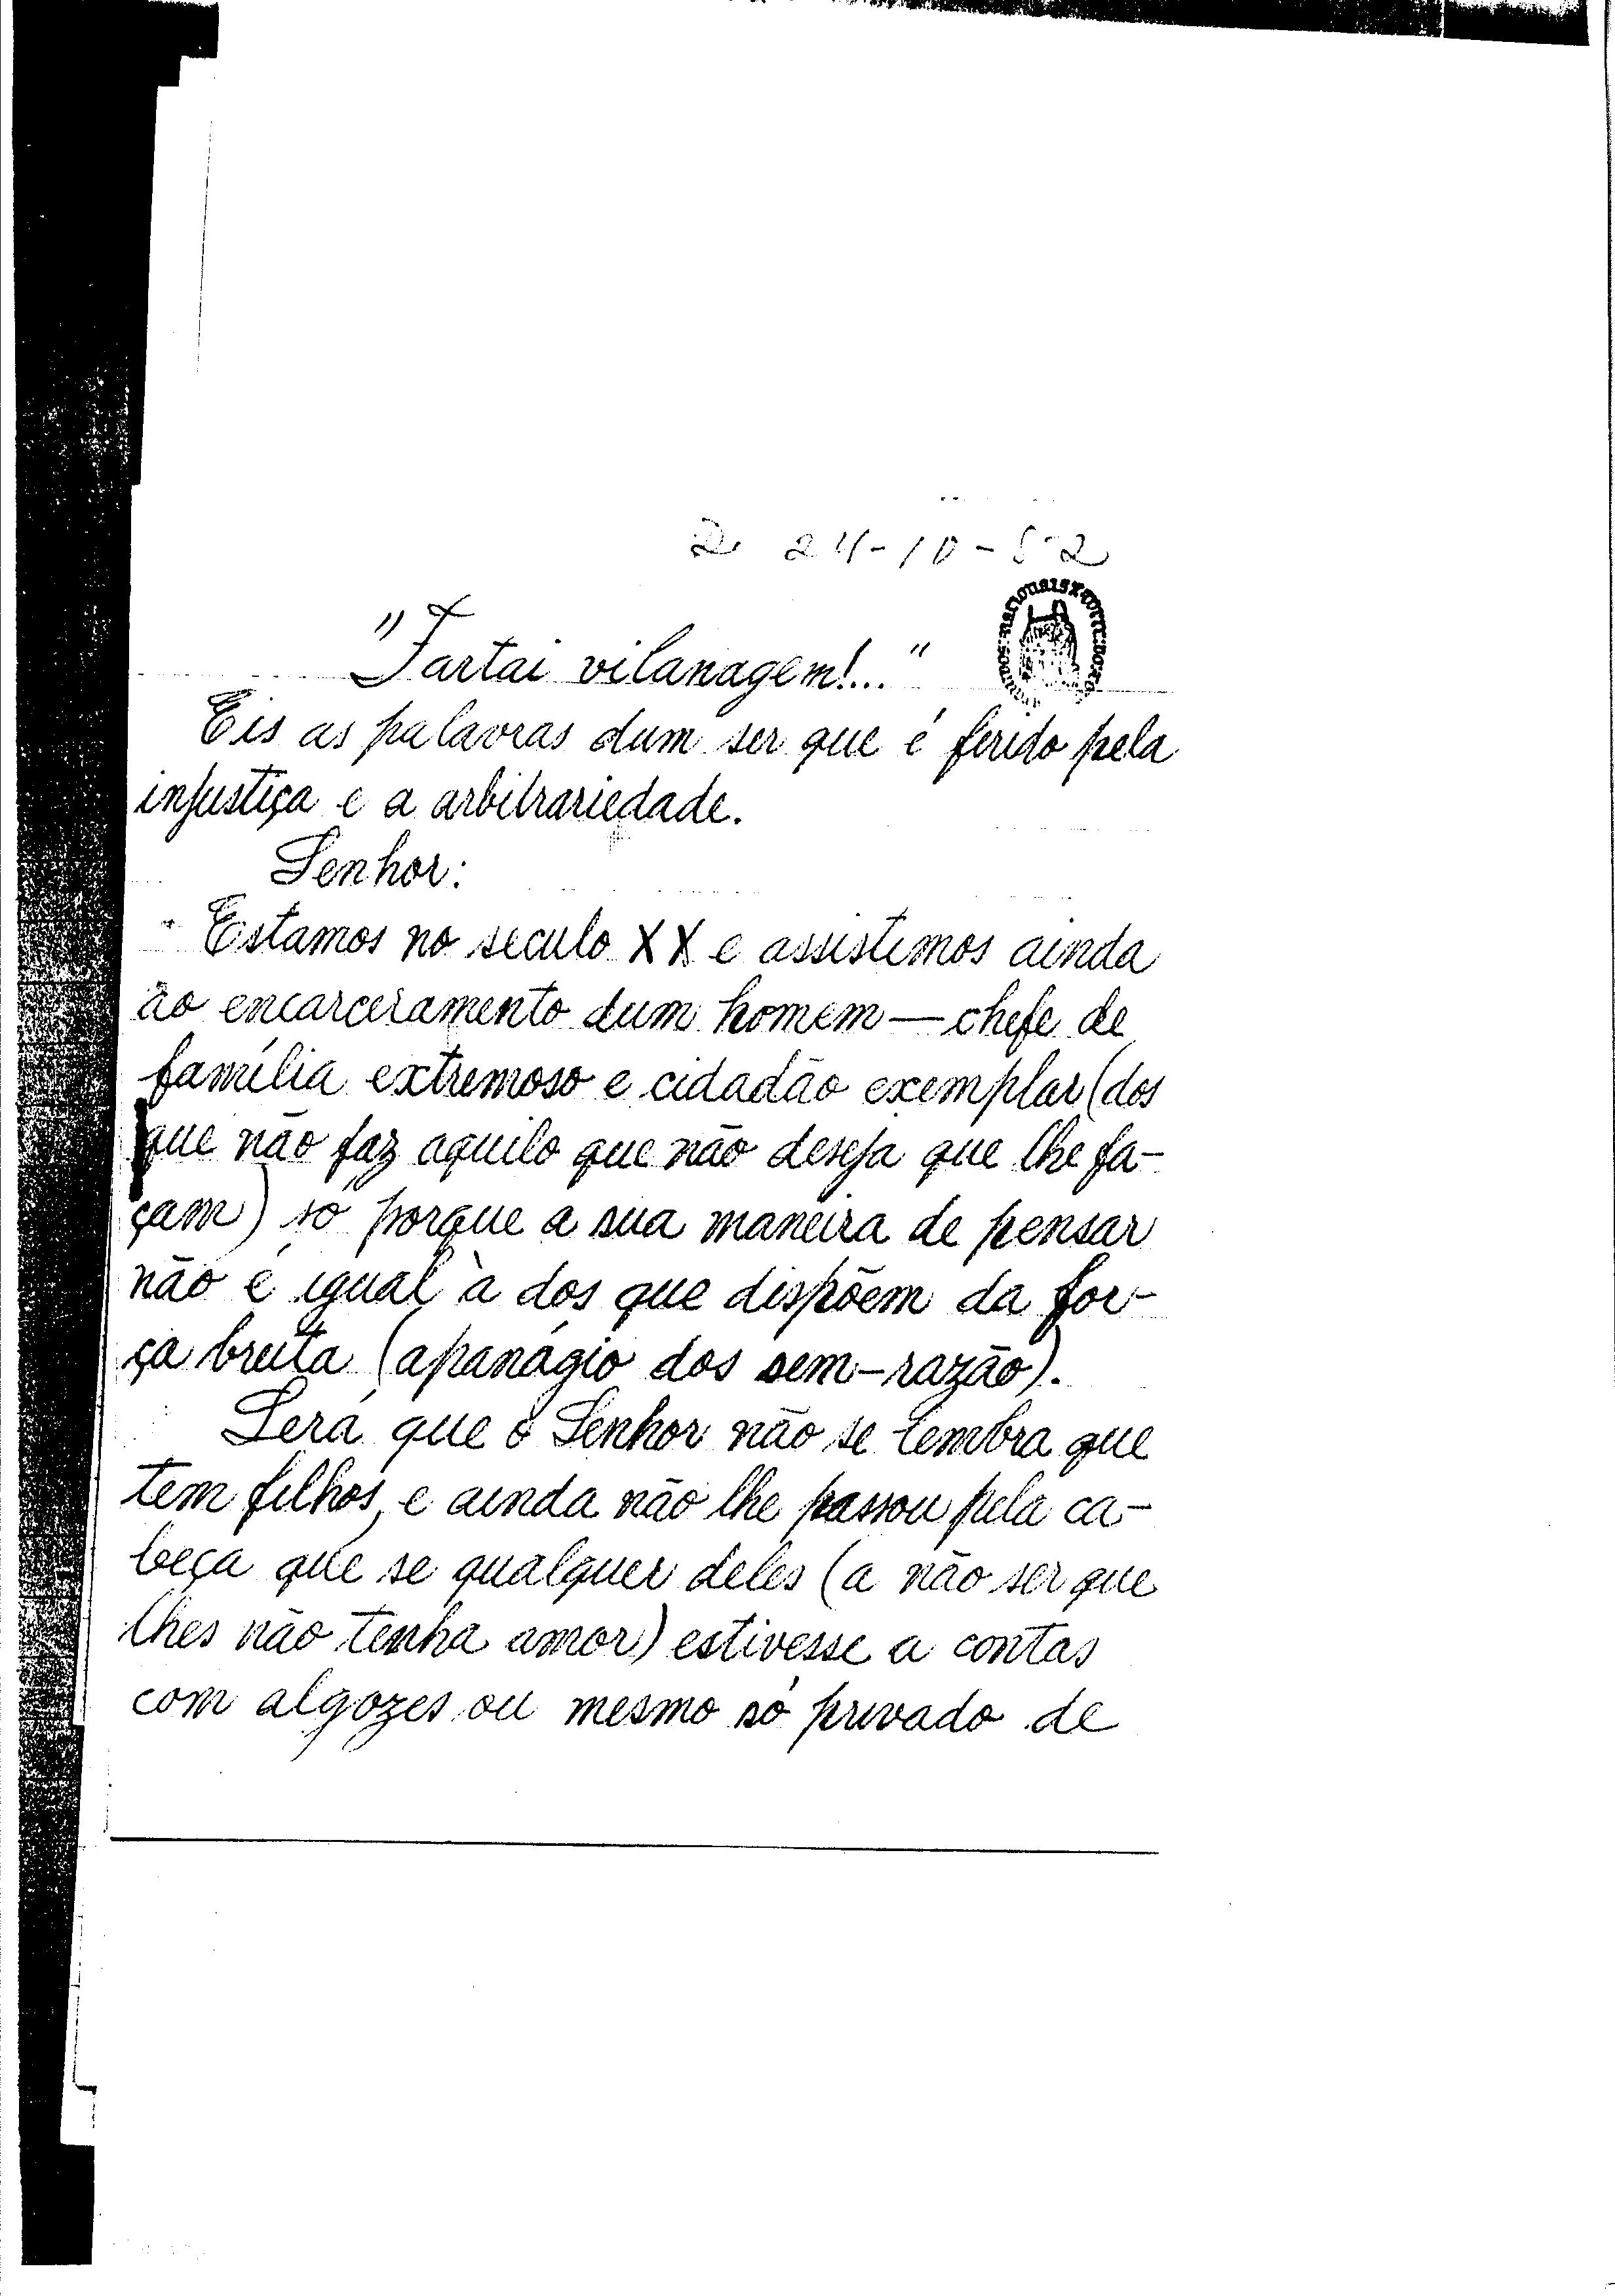 2 24-10-52
"Fartai vilanagem!..."
Eis as palavras dum ser que é ferido pela
injustiça e a arbitrariedade.
Senhor:
Estamos no seculo XX e assistimos ainda
ao encarceramento dum homem — chefe de
família extremoso e cidadão exemplar (dos
que não faz aquilo que não deseja que lhe fa-
çam) só porque a sua maneira de pensar
não é igual à dos que dispõem da for-
ça bruta (apanágio dos sem-razão).
Será que o Senhor não se lembra que
tem filhos, e ainda não lhe passou pela ca-
beça que se qualquer deles (a não ser que
lhes não tenha amor) estivesse a contas
com algozes ou mesmo só privado de